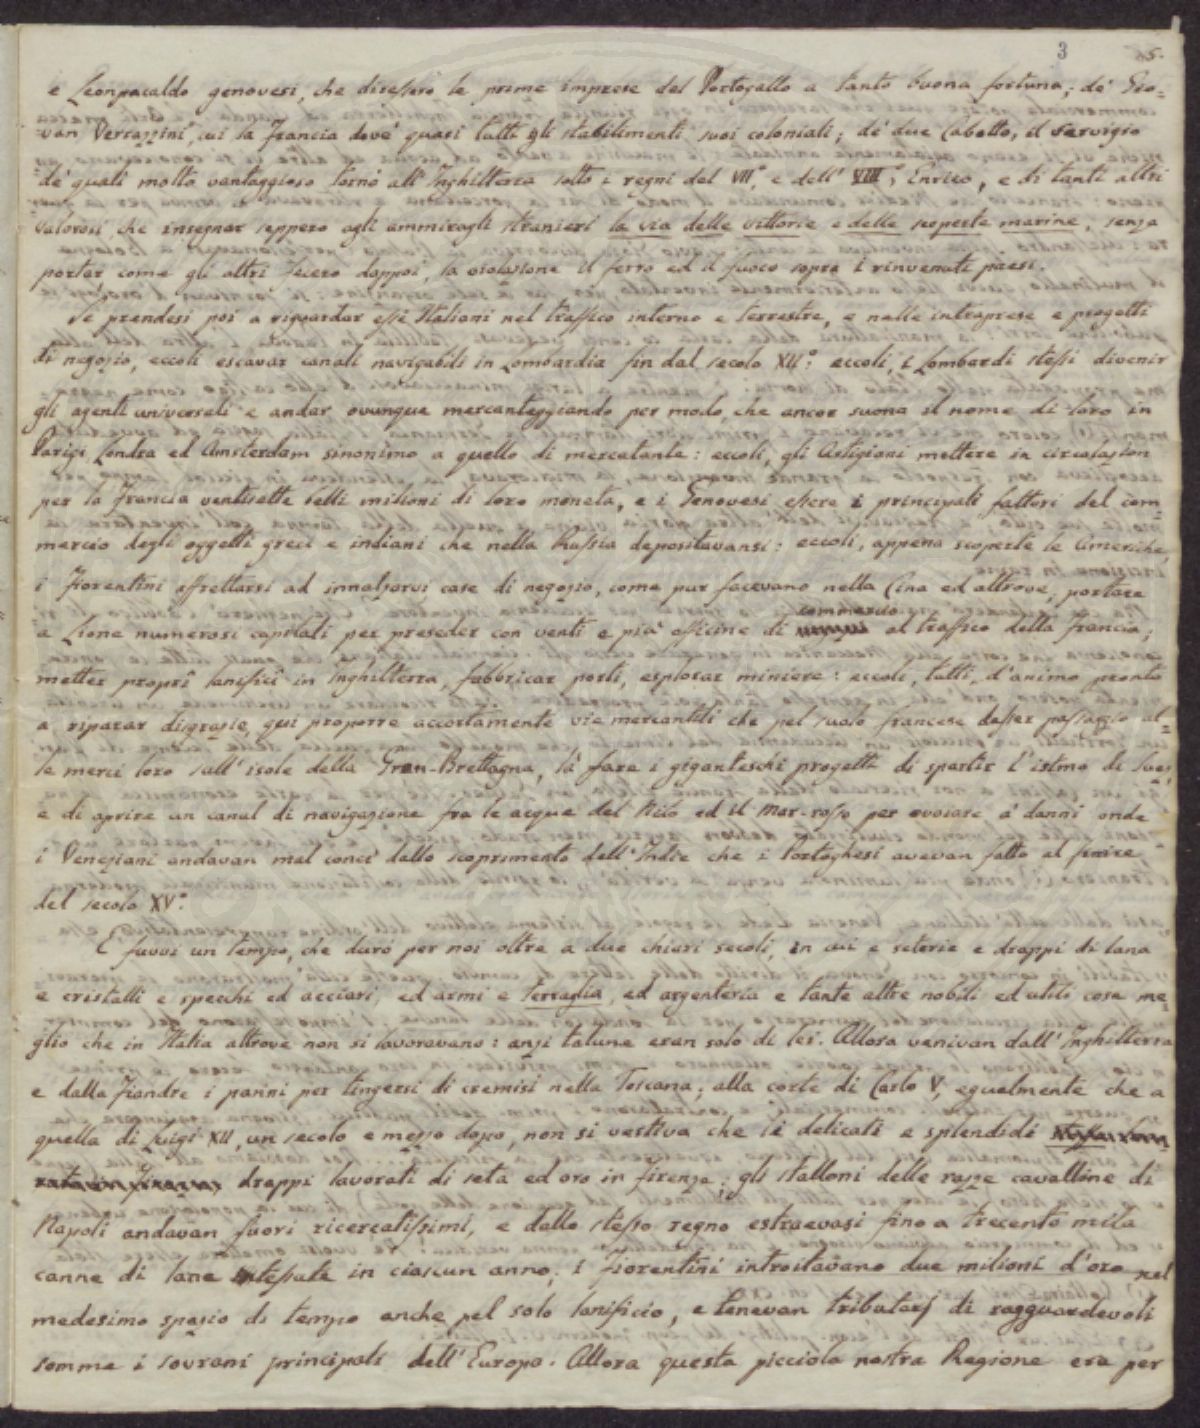 3 5.
e Leonpacaldo genovesi, che diressero le prime imprese del Portogallo a tanto buona fortuna; de' Gio=
van Verrazzini, cui la Francia dove' quasi tutti gli stabilimenti suoi coloniali; de' due Cabotto, il servigio
de' quali molto vantaggioso tornò all'Inghilterra sotto i regni del VII.° e dell'VIII.° Enrico, e di tanti altri
valorosi che insegnar seppero agli ammiragli stranieri la via delle vittorie e delle scoperte marine, senza
portar come gli altri fecero dappoi, la violazione il ferro ed il fuoco sopra i rinvenuti paesi.
Se prendesi poi a riguardar essi Italiani nel traffico interno e terrestre, e nelle intraprese e progetti
di negozio, eccoli escavar canali navigabili in Lombardia fin dal secolo XII.°: eccoli, i Lombardi stessi divenir
gli agenti universali e andar ovunque mercanteggiando per modo, che ancor suona il nome di loro in
Parigi Londra ed Amsterdam sinonimo a quello di mercatante: eccoli, gli Astigiani mettere in circolazion
per la Francia ventisette belli milioni di loro moneta, e i Genovesi essere i principali fattori del com
mercio degli oggetti greci e indiani che nella Russia depositavansi: eccoli, appena scoperte le Americhe,
i Fiorentini affrettarsi ad innalzarvi case di negozio, come pur facevano nella Cina ed altrove, portare
commercio
a Lione numerosi capitali per preseder con venti e più officine di al traffico della Francia;
metter proprî lanificî in Inghilterra, fabbricar porti, esplorar miniere: eccoli, tutti, d'animo pronto
a riparar disgrazie, qui proporre accortamente vie mercantili che pel suolo francese desser passaggio al=
le merci loro sull'isole della Gran-Brettagna, là fare i giganteschi progetti di spartir l'istmo di Suez,
e di aprire un canal di navigazione fra le acque del Nilo ed il Mar-rosso per ovviare a' danni onde
i Veneziani andavan mal conci dallo scoprimento dell'Indie che i Portoghesi avevan fatto al finire
del secolo XV.°
E fuvvi un tempo, che durò per noi oltre a due chiari secoli, in cui e seterie e drappi di lana
e cristalli e specchi ed acciari, ed armi e terraglia, ed argenteria e tante altre nobili ed utili cose me
glio che in Italia altrove non si lavoravano: anzi talune eran solo di lei. Allora venivan dall'Inghilterra
e dalla Fiandre i panni per tingersi di cremisi nella Toscana; alla corte di Carlo V, egualmente che a
quella di Luigi XII, un secolo e mezzo dopo, non si vestiva che i delicati e splendidi
drappi lavorati di seta ed oro in Firenze; gli stalloni delle razze cavalline di
Napoli andavan fuori ricercatissimi, e dallo stesso regno estraevasi fino a trecento mila
canne di lane intessute in ciascun anno; i Fiorentini introitavano due milioni d'oro nel
medesimo spazio di tempo anche pel solo lanificio, e tenevan tributarj di ragguardevoli
somme i sovrani principali dell'Europa. Allora questa picciola nostra Regione era per